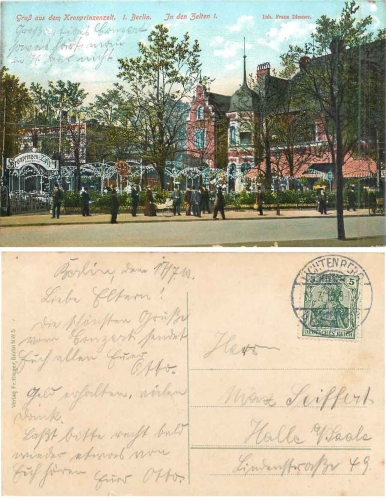 Gruß aus dem Kronprinzenzelt, i. Berlin. In den Zelten 1. Inh. Franz
Großartiges Conzert
Kronprinzen-Zelt
Berlin, den 17/7.10.
Liebe Eltern!
die schönsten Grüße
vom Conzert sendet
Euch allen Euer
Otto.
Geld erhalten, vielen
Dank.
Laßt bitte recht bald
wieder etwas von
Euch hören Euer Otto.
LICHTENBERG
5 5
DEUTSCHES REICH
Herr
Max Seiffert
Halle a/Saale
Lindenstraße 49